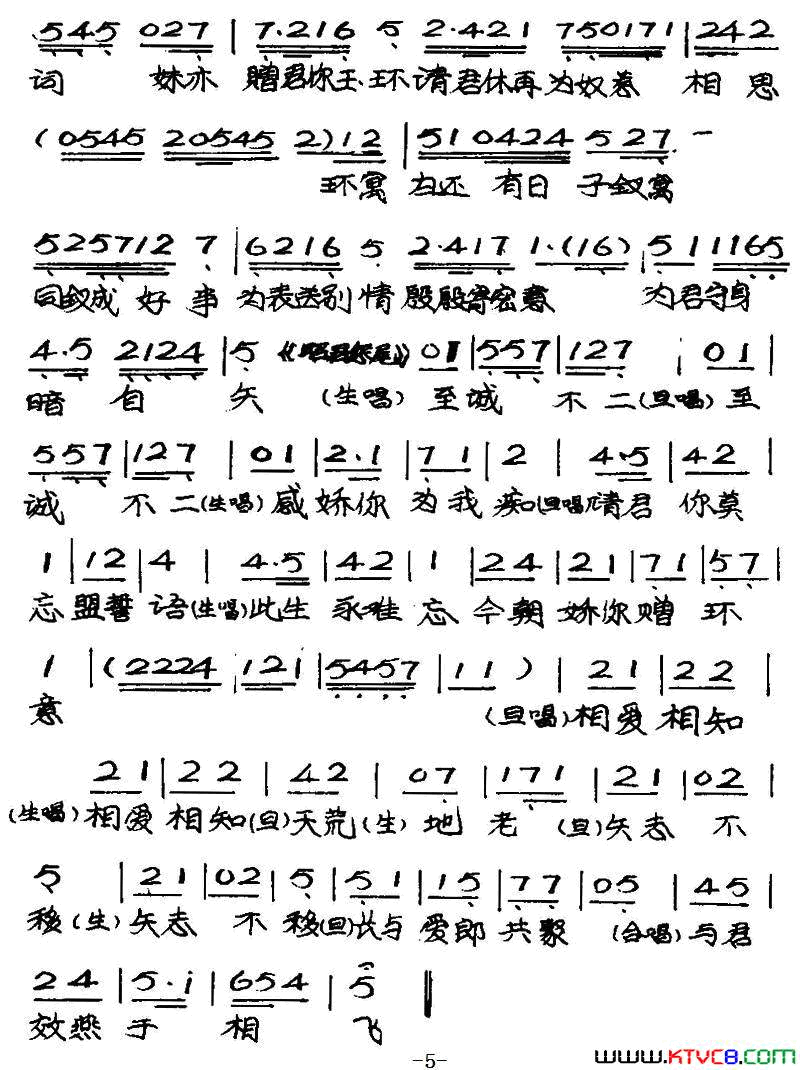 545 027 | 7·216 5 2·421 750171 | 242
词 妹亦 赠君你玉环请君休再为奴惹 相思
(0545 20545 2)12 | 510424 527 一
环寓 在还 有日 子钗寓
525712 7 | 6216 5 2·417 1·(16) 5 11165
同钗成 好 事 为表送别情殷殷寄密意 为君守身
4·5 2124 | 5 01 | 557 | 127 | 01 |
暗 自 矢 (生唱) 至诚 不二(旦唱)至
557 | 127 | 01 | 2·1 | 71 | 2 | 4·5 | 42 |
诚 不二(生唱)感娇你 为我痴(旦唱)请君 你莫
1 | 12 | 4 | 4·5 | 42 | 1 | 24 | 21 | 71 | 57 |
忘盟誓 语(生唱)此生 永难 忘 今朝 娇你赠 环
1 | (2224 121 | 5457 | 11 ) | 21 | 22 |
意 (旦唱)相爱相知
21 | 22 | 42 | 07 | 171 | 21 | 02 |
(生唱)相爱相知(旦)天荒(生) 地 老 (旦)矢志 不
5 | 21 | 02 | 5 | 51 | 15 | 77 | 05 | 45 |
移(生)矢志 不 移(旦)长与 爱郎 共聚 (合唱)与君
24 | 5·i | 654 | 5 ‖
效燕 于 相 飞
-5-
www.KTVC8.com